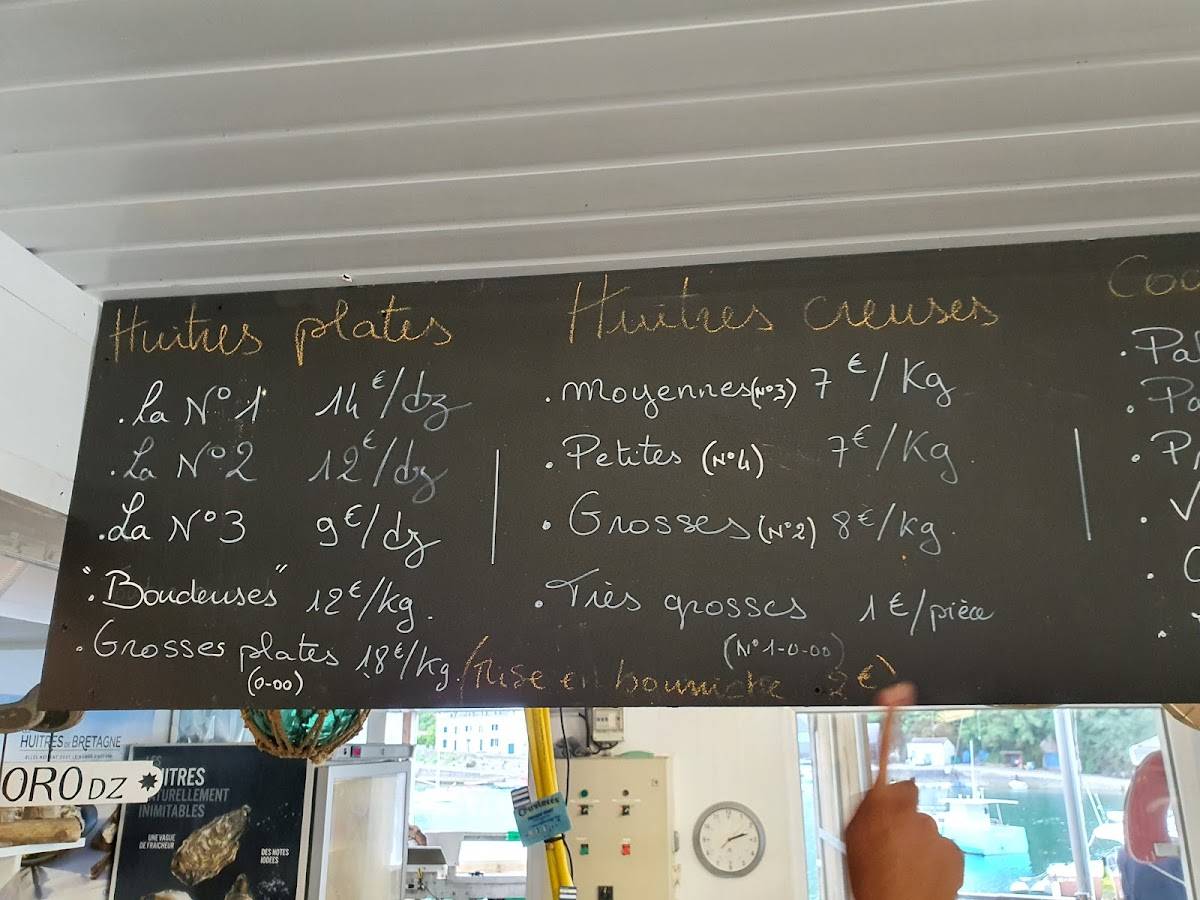 Huîtres plates
. La N°1 14€/dz
. La N°2 12€/dz
. La N°3 9€/dz
. "Boudeuses" 12€/kg.
. Grosses plates 18€/kg.
(0-00)
(Mise en bourriche 2€)
Huitres creuses
. Moyennes (N°3) 7€/Kg
. Petites (N°4) 7€/Kg.
. Grosses (N°2) 8€/kg.
. Très grosses 1€/pièce
(N°1-0-00)
HUÎTRES DE BRETAGNE
ORO DZ
NATURELLEMENT
INIMITABLES
UNE VAGUE
DE FRAICHEUR
DES NOTES
IODÉES